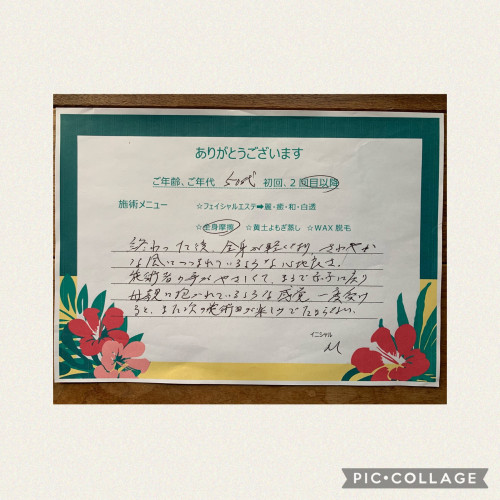 ありがとうございます
ご年齢、ご年代 50代 初回、2回目以降
施術メニュー ☆フェイシャルエステ➡麗・艶・和・白透
☆全身摩擦 ☆黄土よもぎ蒸し ☆WAX脱毛
終わった後、全身が軽い羽、さわやか
な風につつまれているような心地良さ。
施術者の手がやさしくて、まるで赤子に戻り
母親に抱かれているような感覚 一度受け
ると、また次の施術日が楽しみでたまらない。
イニシャル
M
PIC•COLLAGE